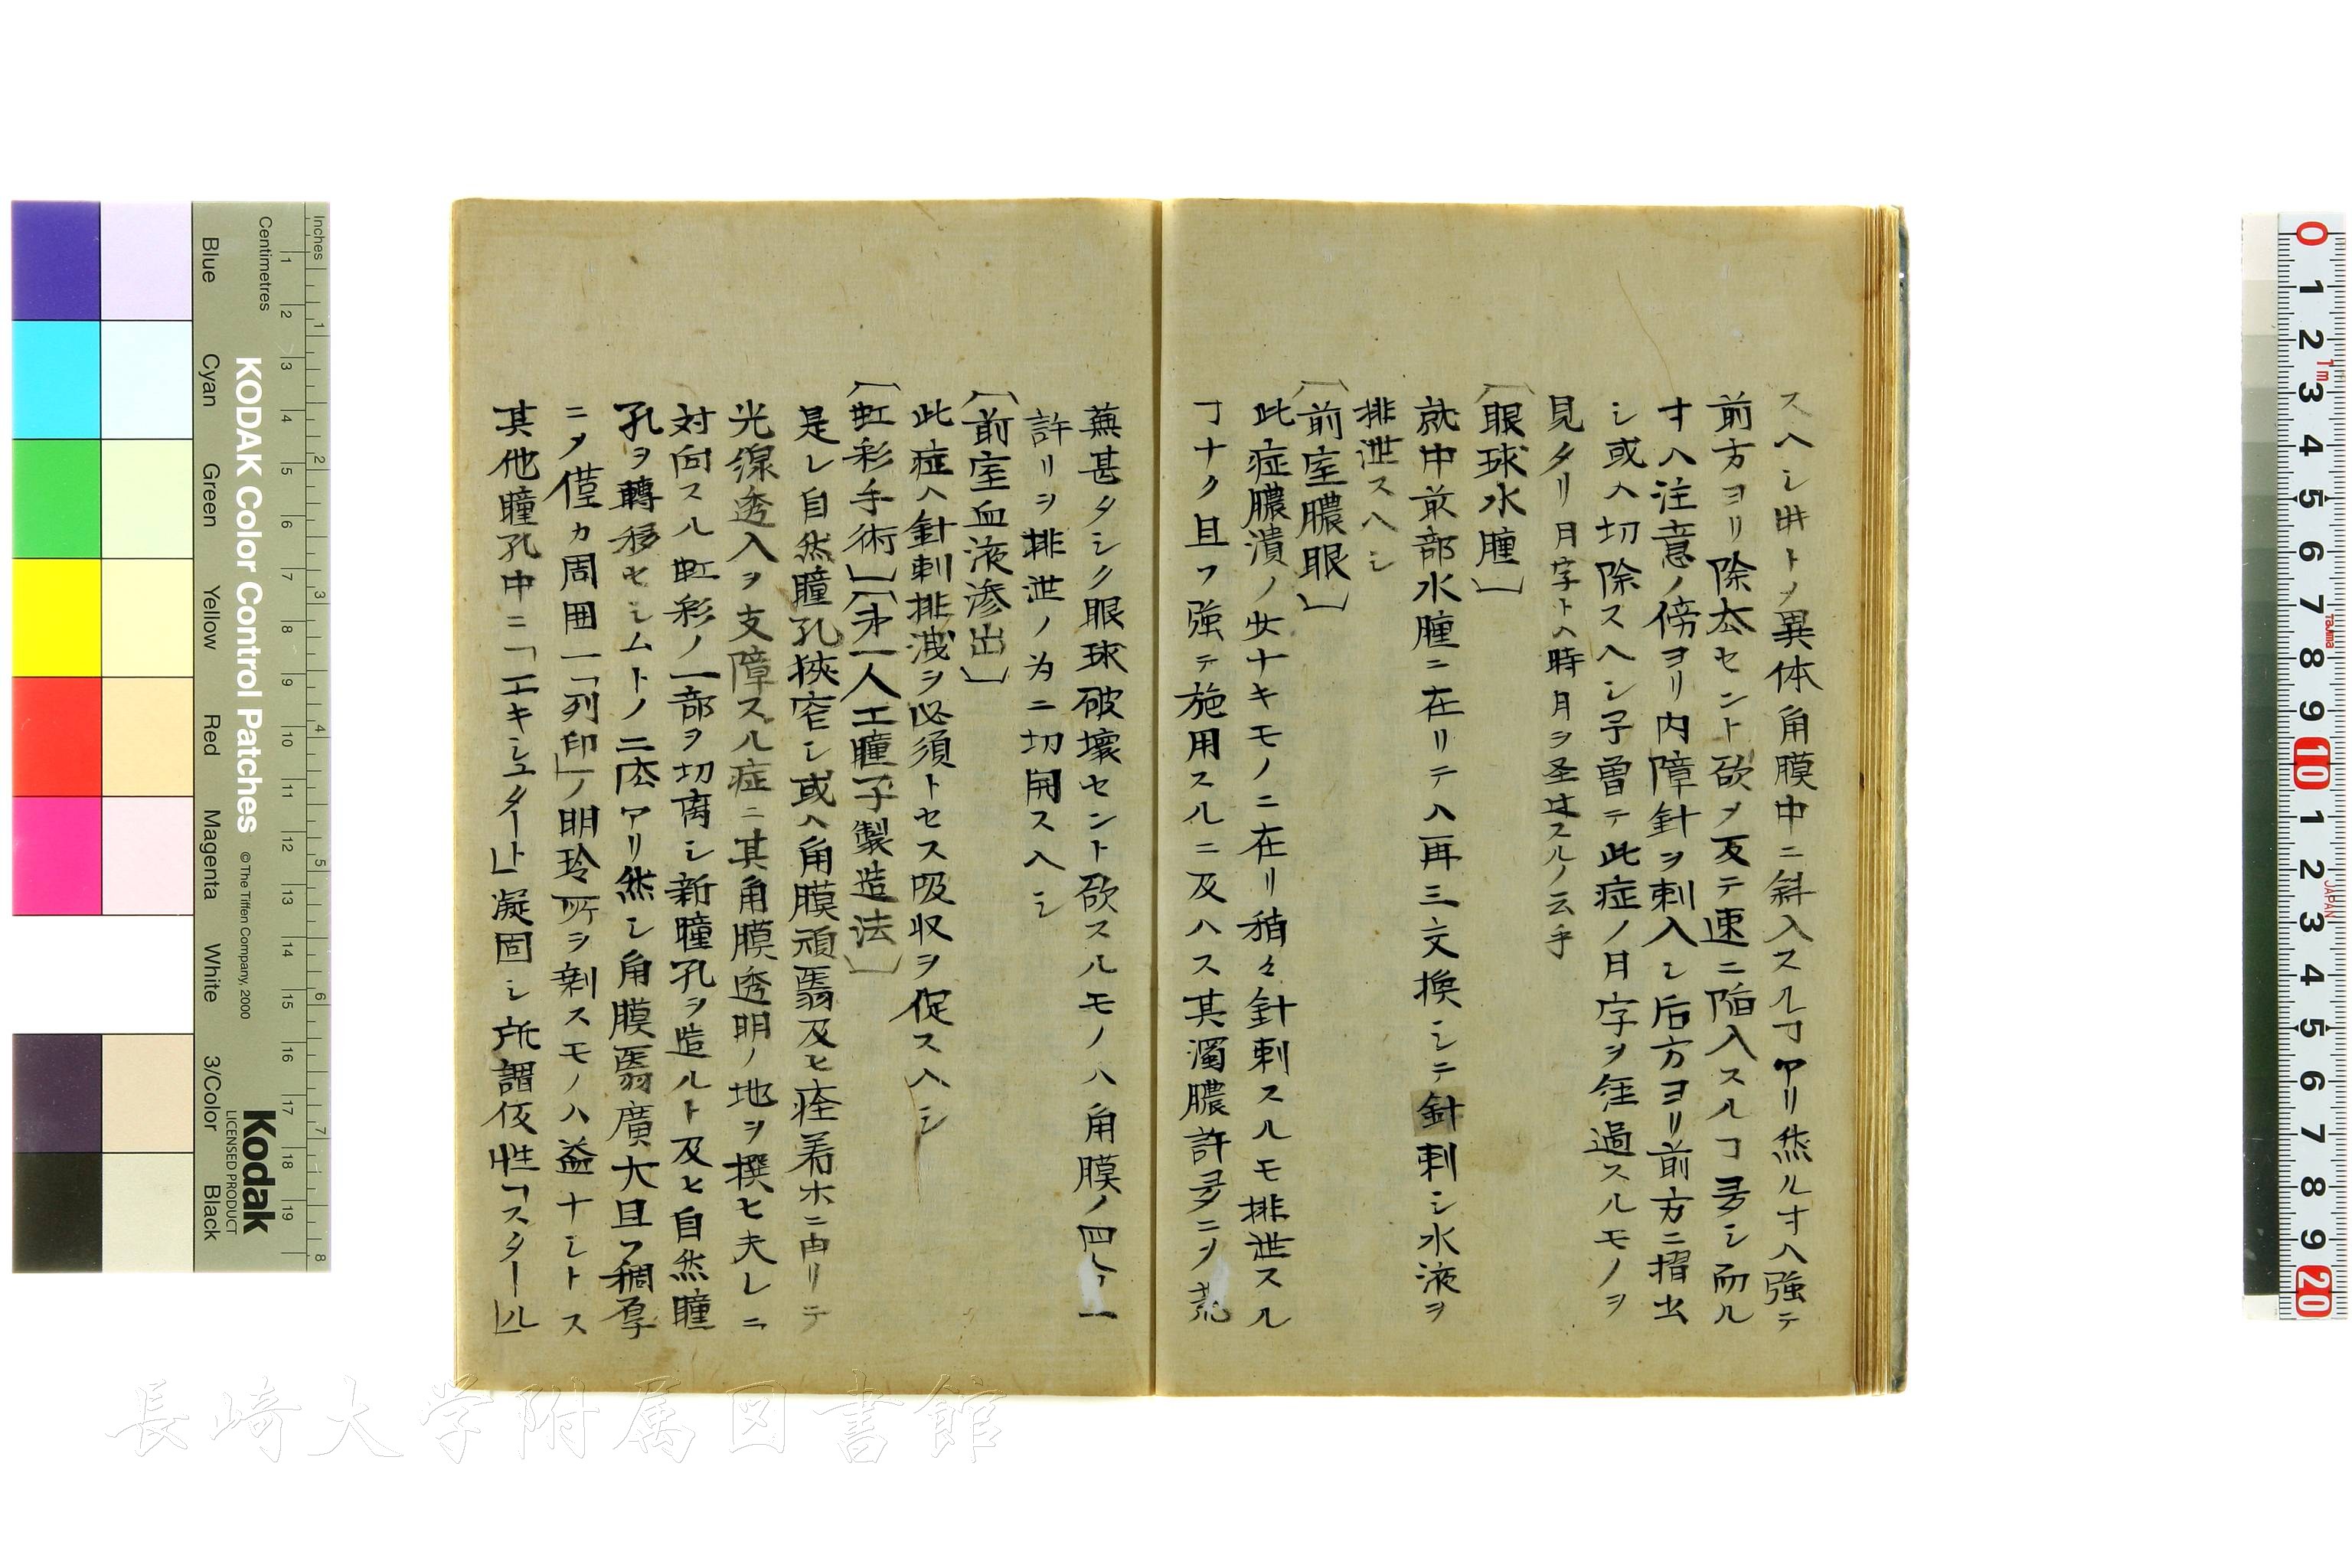 スヘシ時トノ異体角膜中ニ斜入スルヿアリ然ルオハ強テ
前方ヨリ除去セント欲メ反テ速ニ陥入スルヿ多シ而ル
オハ注意ノ傍ヨリ内障針ヲ刺入シ后方ヨリ前方ニ摺出
シ或ハ切除スヘシ予曽テ此症ノ月字ヲ経過スルモノヲ
見タリ 月字トハ時月ヲ圣过スルノ云乎
〔眼球水腫〕
就中前部水腫ニ在リテハ再三交換シテ針刺シ水液ヲ
排泄スヘシ
〔前室膿眼〕
此症膿潰ノ少ナキモノニ在リ稍々針刺スルモ排泄スル
ヿナク且フ強テ施用スルニ及ハス其濁膿許多ニノ荒
蕪甚タシク眼球破壊セント欲スルモノハ角膜ノ四分一
許リヲ排泄ノ為ニ切開スヘシ
〔前室血液滲出〕
此症ハ針刺排洩ヲ必須トセス吸収ヲ促スヘシ
〔虹彩手術〕〔第一人工瞳子製造法〕
是レ自然瞳孔狹窄シ或ハ角膜頑翳及ヒ痊着ホニ由リテ
光線透入ヲ支障スル症ニ其角膜透明ノ地ヲ撰ヒ夫レニ
対向スル虹彩ノ一部ヲ切离シ新瞳孔ヲ造ルト及ヒ自然瞳
孔ヲ轉移セシムトノ二法アリ然シ角膜翳廣大且フ稠厚
ニノ僅カ周囲一「列印」ノ明玲所ヲ剰スモノハ益ナシトス
其他瞳孔中ニ「エキシュタート」凝固シ所謂仮性「スタール」
KODAK Color Control Patches
© The Tiffen Company, 2000
Kodak
LICENSED PRODUCT
Inches
Centimetres
Blue
Cyan
Green
Yellow
Red
Magenta
White
3/Color
Black
長崎大学附属図書館